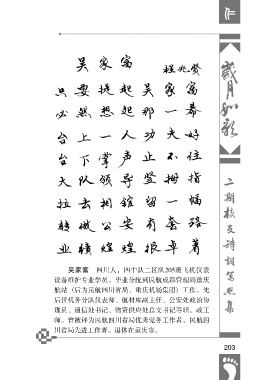 作
吴家富
程兆贤
只要提起吴家富
必然想起那一幕
台上一人功夫好
台下掌声止不住
大队领导竖拇指
拉去相馆留一幅
转做公安有套路
业绩煌煌很卓著
吴家富 四川人，四中队二区队205班飞机仪表
设备维护专业学员，毕业分配到民航成都管理局重庆
航站（后为民航四川省局、重庆机场集团）工作。先
后任机务分队仪表师、航材库副主任、公安处政治协
理员、通信处书记、物资供应处总支书记等职。政工
师。曾被评为民航四川省局优秀安全工作者、民航四
川省局先进工作者。退休在重庆市。
岁月如歌
二期校友诗词写照集
203